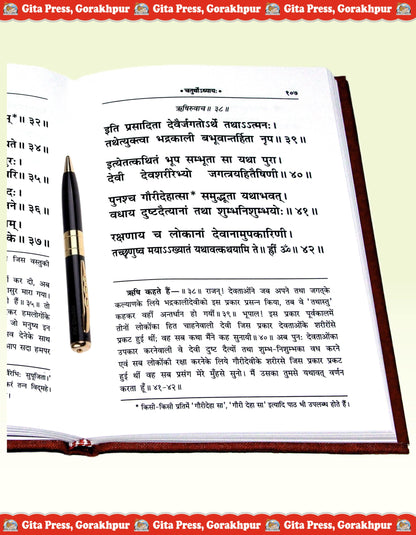 Gita Press, Gorakhpur Gita Press, Gorakhpur Gita Press, Gorakhpur
॥ ३२॥
र्तते।
॥ ३४॥
रि॥ ३५॥
॥ ३६॥
के॥ ३७॥
जिस वस्तुकी
कर दी, अब
सुर मारा गया।
॥ ३५॥ तो
कर हमलोगोंके
जो मनुष्य इन
देनेके साथ
आप सदा हमपर
• चतुर्थोऽध्यायः •
१०७
ऋषिरुवाच॥ ३८॥
इति प्रसादिता देवैर्जगतोऽर्थे तथाऽऽत्मनः।
तथेत्युक्त्वा भद्रकाली बभूवान्तर्हिता नृप॥ ३९॥
इत्येतत्कथितं भूप सम्भूता सा यथा पुरा।
देवी देवशरीरेभ्यो जगत्त्रयहितैषिणी॥ ४०॥
पुनश्च गौरीदेहात्सा* समुद्भूता यथाभवत्।
वधाय दुष्टदैत्यानां तथा शुम्भनिशुम्भयोः॥ ४१॥
रक्षणाय च लोकानां देवानामुपकारिणी।
तच्छृणुष्व मयाऽऽख्यातं यथावत्कथयामि ते॥ ह्रीं ॐ॥ ४२॥
ऋषि कहते हैं—॥ ३८॥ राजन्! देवताओंने जब अपने तथा जगत्‌के
कल्याणके लिये भद्रकालीदेवीको इस प्रकार प्रसन्न किया, तब वे 'तथास्तु'
कहकर वहीं अन्तर्धान हो गयीं॥ ३९॥ भूपाल! इस प्रकार पूर्वकालमें
तीनों लोकोंका हित चाहनेवाली देवी जिस प्रकार देवताओंके शरीरोंसे
प्रकट हुई थीं; वह सब कथा मैंने कह सुनायी॥ ४०॥ अब पुनः देवताओंका
उपकार करनेवाली वे देवी दुष्ट दैत्यों तथा शुम्भ-निशुम्भका वध करने
एवं सब लोकोंकी रक्षा करनेके लिये गौरीदेवीके शरीरसे जिस प्रकार प्रकट
हुई थीं वह सब प्रसंग मेरे मुँहसे सुनो। मैं उसका तुमसे यथावत् वर्णन
करता हूँ॥ ४१-४२॥
* किसी-किसी प्रतिमें 'गौरीदेहा सा', 'गौरी देहा सा' इत्यादि पाठ भी उपलब्ध होते हैं।
Gita Press, Gorakhpur Gita Press, Gorakhpur Gita Press, Gorakhpur